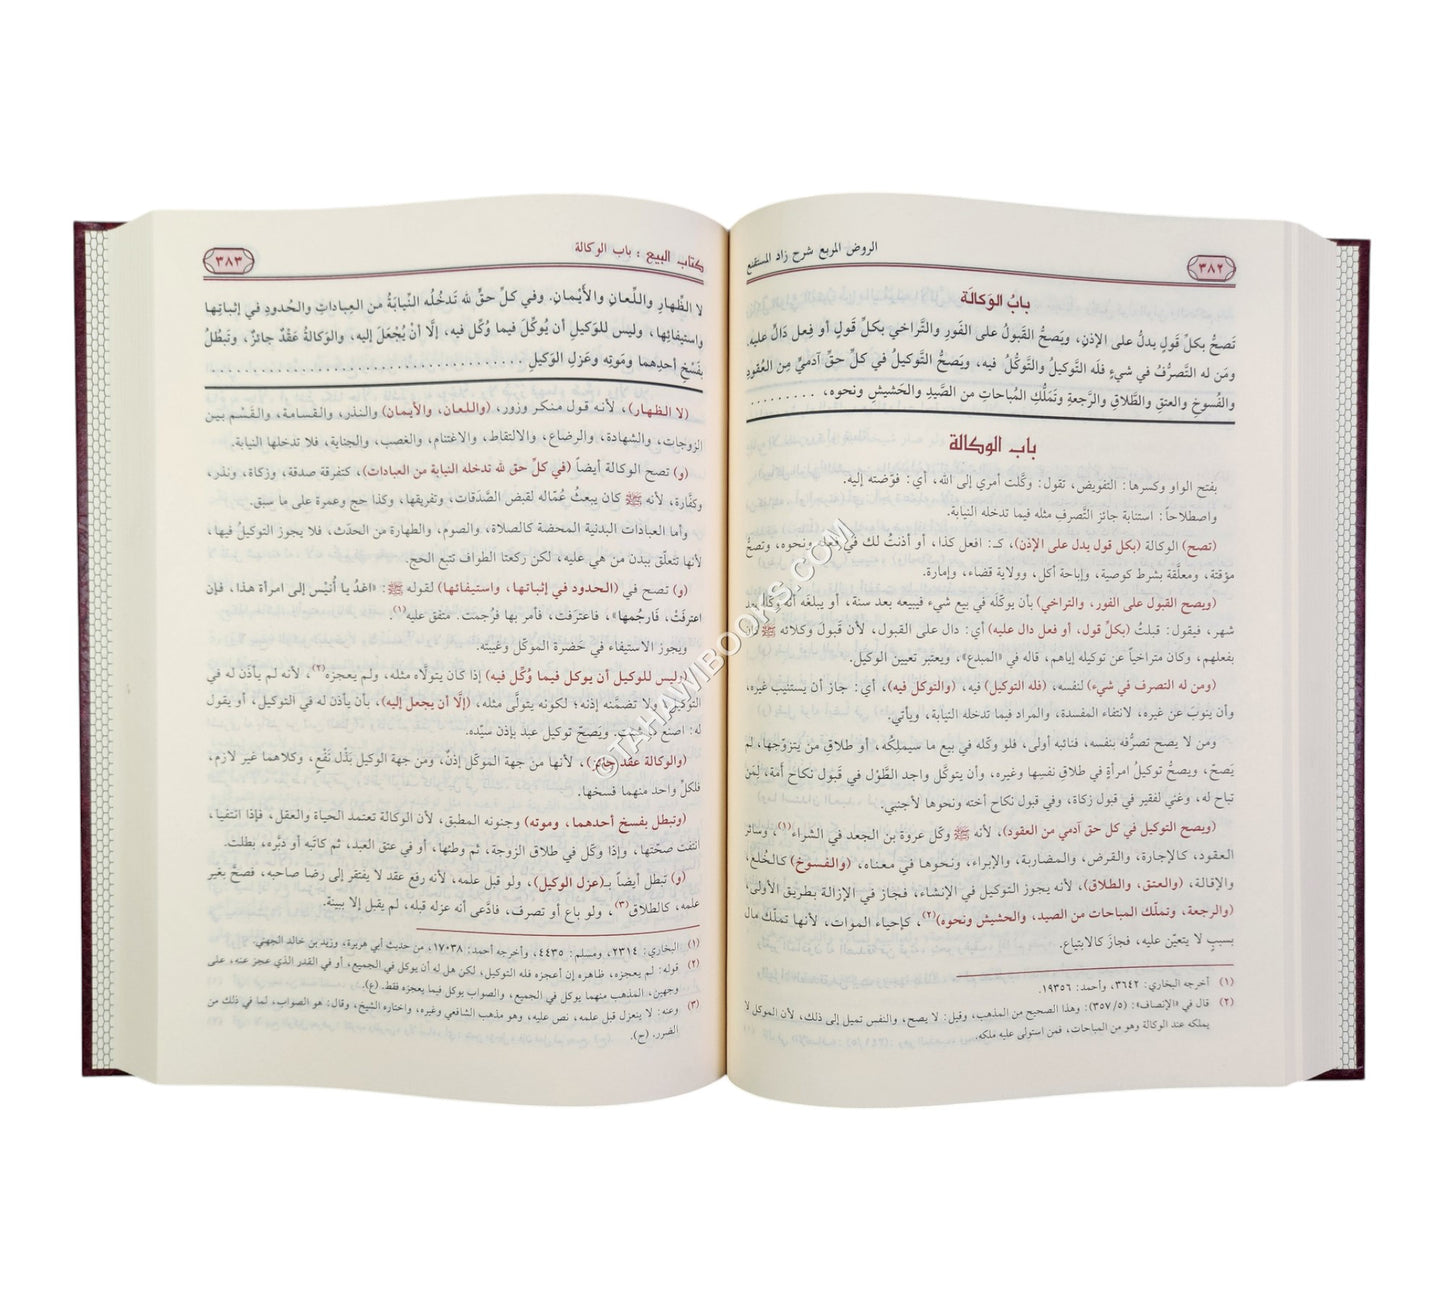 الروض المربع شرح زاد المستقنع
٣٨٢
بابُ الوَكالَة
تَصحُّ بكلِّ قَولٍ يدلُّ على الإذنِ، ويَصحُّ القَبولُ على الفَورِ والتَّراخي بكلِّ قَولٍ أو فِعلٍ دَالٍّ عليه.
ومَن له التَّصرُّفُ في شيءٍ فلَه التَّوكيلُ والتَّوكُّلُ فيه، ويَصحُّ التَّوكيلُ في كلِّ حقِّ آدميٍّ مِن العُقودِ
والفُسوخِ والعتقِ والطَّلاقِ والرَّجعةِ وتَملُّكِ المُباحاتِ من الصَّيدِ والحَشيشِ ونحوِه، . . . . . . . . .
باب الوكالة
بفتح الواو وكسرها: التفويض، تقول: وكَّلت أمري إلى الله، أي: فوَّضته إليه.
واصطلاحاً: استنابة جائز التَّصرفِ مثله فيما تدخله النيابة.
(تصح) الوكالة (بكل قول يدل على الإذن)، كـ: افعل كذا، أو أذنتُ لك في فعله ونحوه، وتصحُّ
مؤقتة، ومعلَّقة بشرط كوصية، وإباحة أكل، وولاية قضاء، وإمارة.
(ويصح القبول على الفور، والتراخي) بأن يوكله في بيع شيء فيبيعه بعد سنة، أو يبلغَه أنه وكله بعد
شهر، فيقول: قبلتُ (بكلِّ قول، أو فعل دال عليه) أي: دال على القبول، لأن قَبولَ وكلائه ﷺ كان
بفعلهم، وكان متراخياً عن توكيله إياهم، قاله في «المبدع»، ويعتبر تعيين الوكيل.
(ومن له التصرف في شيء) لنفسه، (فله التوكيل) فيه، (والتوكل فيه)، أي: جاز أن يستنيب غيره،
وأن ينوبَ عن غيره، لانتفاء المفسدة، والمراد فيما تدخله النيابة، ويأتي.
ومن لا يصح تصرُّفه بنفسه، فنائبه أولى، فلو وكله في بيع ما سيملِكُه، أو طلاقِ من يتزوَّجها، لم
يَصحّ، ويصحُّ توكيلُ امرأةٍ في طلاقِ نفسِها وغيره، وأن يتوكَّل واجد الطَّوْل في قَبول نكاح أَمة، لِمَن
تباح له، وغني لفقير في قبول زكاة، وفي قبول نكاح أخته ونحوها لأجنبي.
(ويصح التوكيل في كل حق آدمي من العقود)، لأنه ﷺ وكّل عروة بن الجعد في الشراء(١)، وسائر
العقود، كالإجارة، والقرض، والمضاربة، والإبراء، ونحوها في معناه، (والفسوخ) كالخُلع،
والإقالة، (والعتق، والطلاق)، لأنه يجوز التوكيل في الإنشاء، فجاز في الإزالة بطريق الأولى،
(والرجعة، وتملّك المباحات من الصيد، والحشيش ونحوه)(٢)، كإحياء الموات، لأنها تملّك مال
بسببٍ لا يتعيّن عليه، فجازَ كالابتياع.
(١) أخرجه البخاري: ٣٦٤٢، وأحمد: ١٩٣٥٦.
(٢) قال في «الإنصاف»: (٣٥٧/٥): وهذا الصحيح من المذهب، وقيل: لا يصح، والنفس تميل إلى ذلك، لأن الموكل لا
يملكه عند الوكالة وهو من المباحات، فمن استولى عليه ملكه.
كتاب البيع : باب الوكالة
٣٨٣
لا الظِّهارِ واللِّعانِ والأَيْمانِ. وفي كلِّ حقٍّ لله تَدخُلُه النِّيابَةُ من العباداتِ والحُدودِ في إثباتِها
واستيفائِها، وليس للوَكيلِ أن يُوكِّلَ فيما وُكِّل فيه، إلَّا أنْ يُجْعَلَ إليه، والوَكالةُ عَقْدٌ جائزٌ، وتَبطُلُ
بفَسْخِ أحدِهما ومَوتِه وعَزلِ الوَكيلِ . . . . . . . . . . . . . . . . . . . . . . . . . . . . . .
(لا الظهار)، لأنه قول منكر وزور، (واللعان، والأيمان) والنذر، والقسامة، والقَسْم بين
الزوجات، والشهادة، والرضاع، والالتقاط، والاغتنام، والغصب، والجناية، فلا تدخلها النيابة.
(و) تصح الوكالة أيضاً (في كلِّ حق لله تدخله النيابة من العبادات)، كتفرقة صدقة، وزكاة، ونذر،
وكفَّارة، لأنه ﷺ كان يبعثُ عُمّاله لقبض الصَّدَقات، وتفريقها، وكذا حج وعمرة على ما سبق.
وأما العبادات البدنية المحضة كالصلاة، والصوم، والطهارة من الحدث، فلا يجوز التوكيلُ فيها،
لأنها تتعلّق ببدن من هي عليه، لكن ركعتا الطواف تتبع الحج.
(و) تصح في (الحدود في إثباتها، واستيفائها) لقوله ﷺ: «اغدُ يا أُنَيْس إلى امرأة هذا، فإن
اعترفَتْ، فَارجُمها»، فاعترَفت، فأمر بها فرُجمت. متفق عليه(١).
ويجوز الاستيفاء في حَضرة الموكّل وغيبته.
(وليس للوكيل أن يوكل فيما وُكِّل فيه) إذا كان يتولَّاه مثله، ولم يعجزه(٢)، لأنه لم يأذَن له في
التوكيل، ولا تضمَّنه إذنه؛ لكونه يتولَّى مثله، (إلَّا أن يجعل إليه)، بأن يأذن له في التوكيل، أو يقول
له: اصنع ما شئتَ. ويَصحّ توكيل عبدٍ بإذن سيّده.
(والوكالة عقد جائز)، لأنها من جهة الموكّل إذنٌ، ومن جهة الوكيل بَذْل نَفْعٍ، وكلاهما غير لازم،
فلكلِّ واحد منهما فسخها.
(وتبطل بفسخ أحدهما، وموته) وجنونه المطبق، لأن الوكالة تعتمد الحياة والعقل، فإذا انتفيا،
انتفت صحّتها، وإذا وكّل في طلاق الزوجة، ثم وطئها، أو في عتق العبد، ثم كاتَبه أو دبَّره، بطلت.
(و) تبطل أيضاً بـ(عزل الوكيل)، ولو قبل علمه، لأنه رفع عقد لا يفتقر إلى رضا صاحبه، فصحَّ بغير
علمه، كالطلاق(٣)، ولو باع أو تصرف، فادَّعى أنه عزله قبله، لم يقبل إلا ببينة.
(١) البخاري: ٢٣١٤، ومسلم: ٤٤٣٥، وأخرجه أحمد: ١٧٠٣٨، من حديث أبي هريرة، وزيد بن خالد الجهني.
(٢) قوله: لم يعجزه، ظاهره إن أعجزه فله التوكيل، لكن هل له أن يوكل في الجميع، أو في القدر الذي عجز عنه، على
وجهين، المذهب منهما يوكل في الجميع، والصواب يوكل فيما يعجزه فقط. (ع).
(٣) وعنه: لا ينعزل قبل علمه، نص عليه، وهو مذهب الشافعي وغيره، واختاره الشيخ، وقال: هو الصواب، لما في ذلك من
الضرر. (ح).
©TAHAWIBOOKS.COM